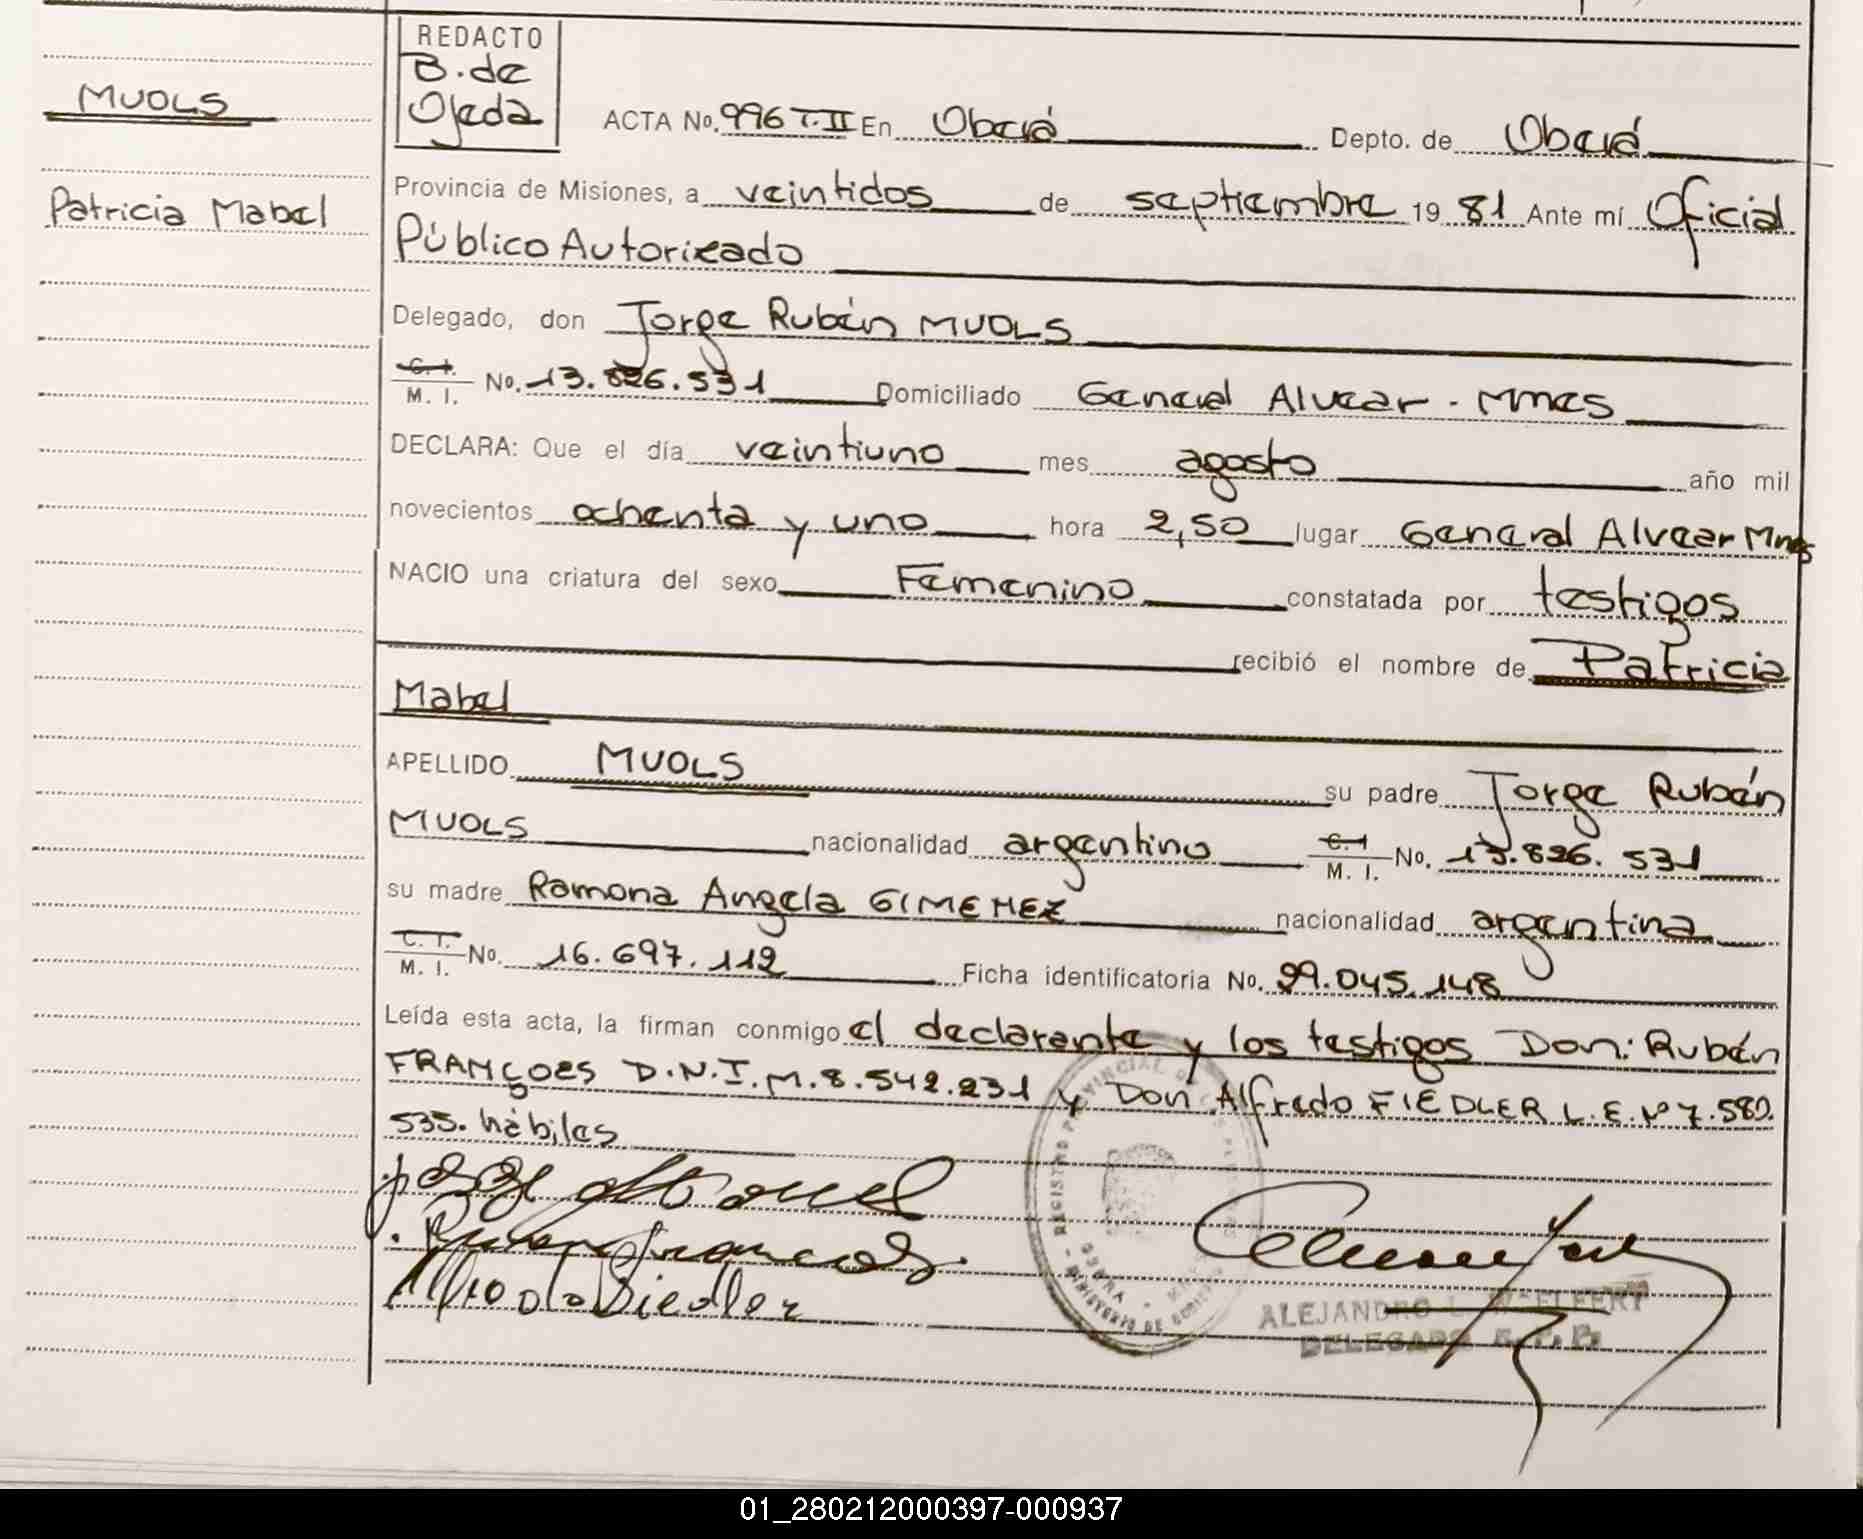 MUOLS
Patricia Mabel
REDACTO
B. de
Ojeda
ACTA No. 996 T.II En Oberá Depto. de Oberá
Provincia de Misiones, a veintidos de septiembre 19 81 Ante mí Oficial
Público Autorizado
Delegado, don Jorge Rubén MUOLS
C. I.
M. I. No. 13.826.531 Domiciliado General Alvear - Mnes
DECLARA: Que el día veintiuno mes agosto año mil
novecientos ochenta y uno hora 2,50 lugar General Alvear Mnes
NACIO una criatura del sexo Femenino constatada por testigos
recibió el nombre de Patricia
Mabel
APELLIDO MUOLS su padre Jorge Rubén
MUOLS nacionalidad argentino C. I M. I. No. 13.826.531
su madre Ramona Angela GIMENEZ nacionalidad argentina
C. I. M. I. No. 16.697.112 Ficha identificatoria No. 29.045.148
Leída esta acta, la firman conmigo el declarante y los testigos Don: Rubén
FRANÇOES D.N.I.M. 8.542.231 y Don Alfredo FIEDLER L.E. Nº 7.580.
535. hábiles
Alfredo Fiedler
REGISTRO PROVINCIAL DE
OBERA
MINISTERIO DE
ALEJANDRO
DELEGADO R.P.P.
01_280212000397-000937